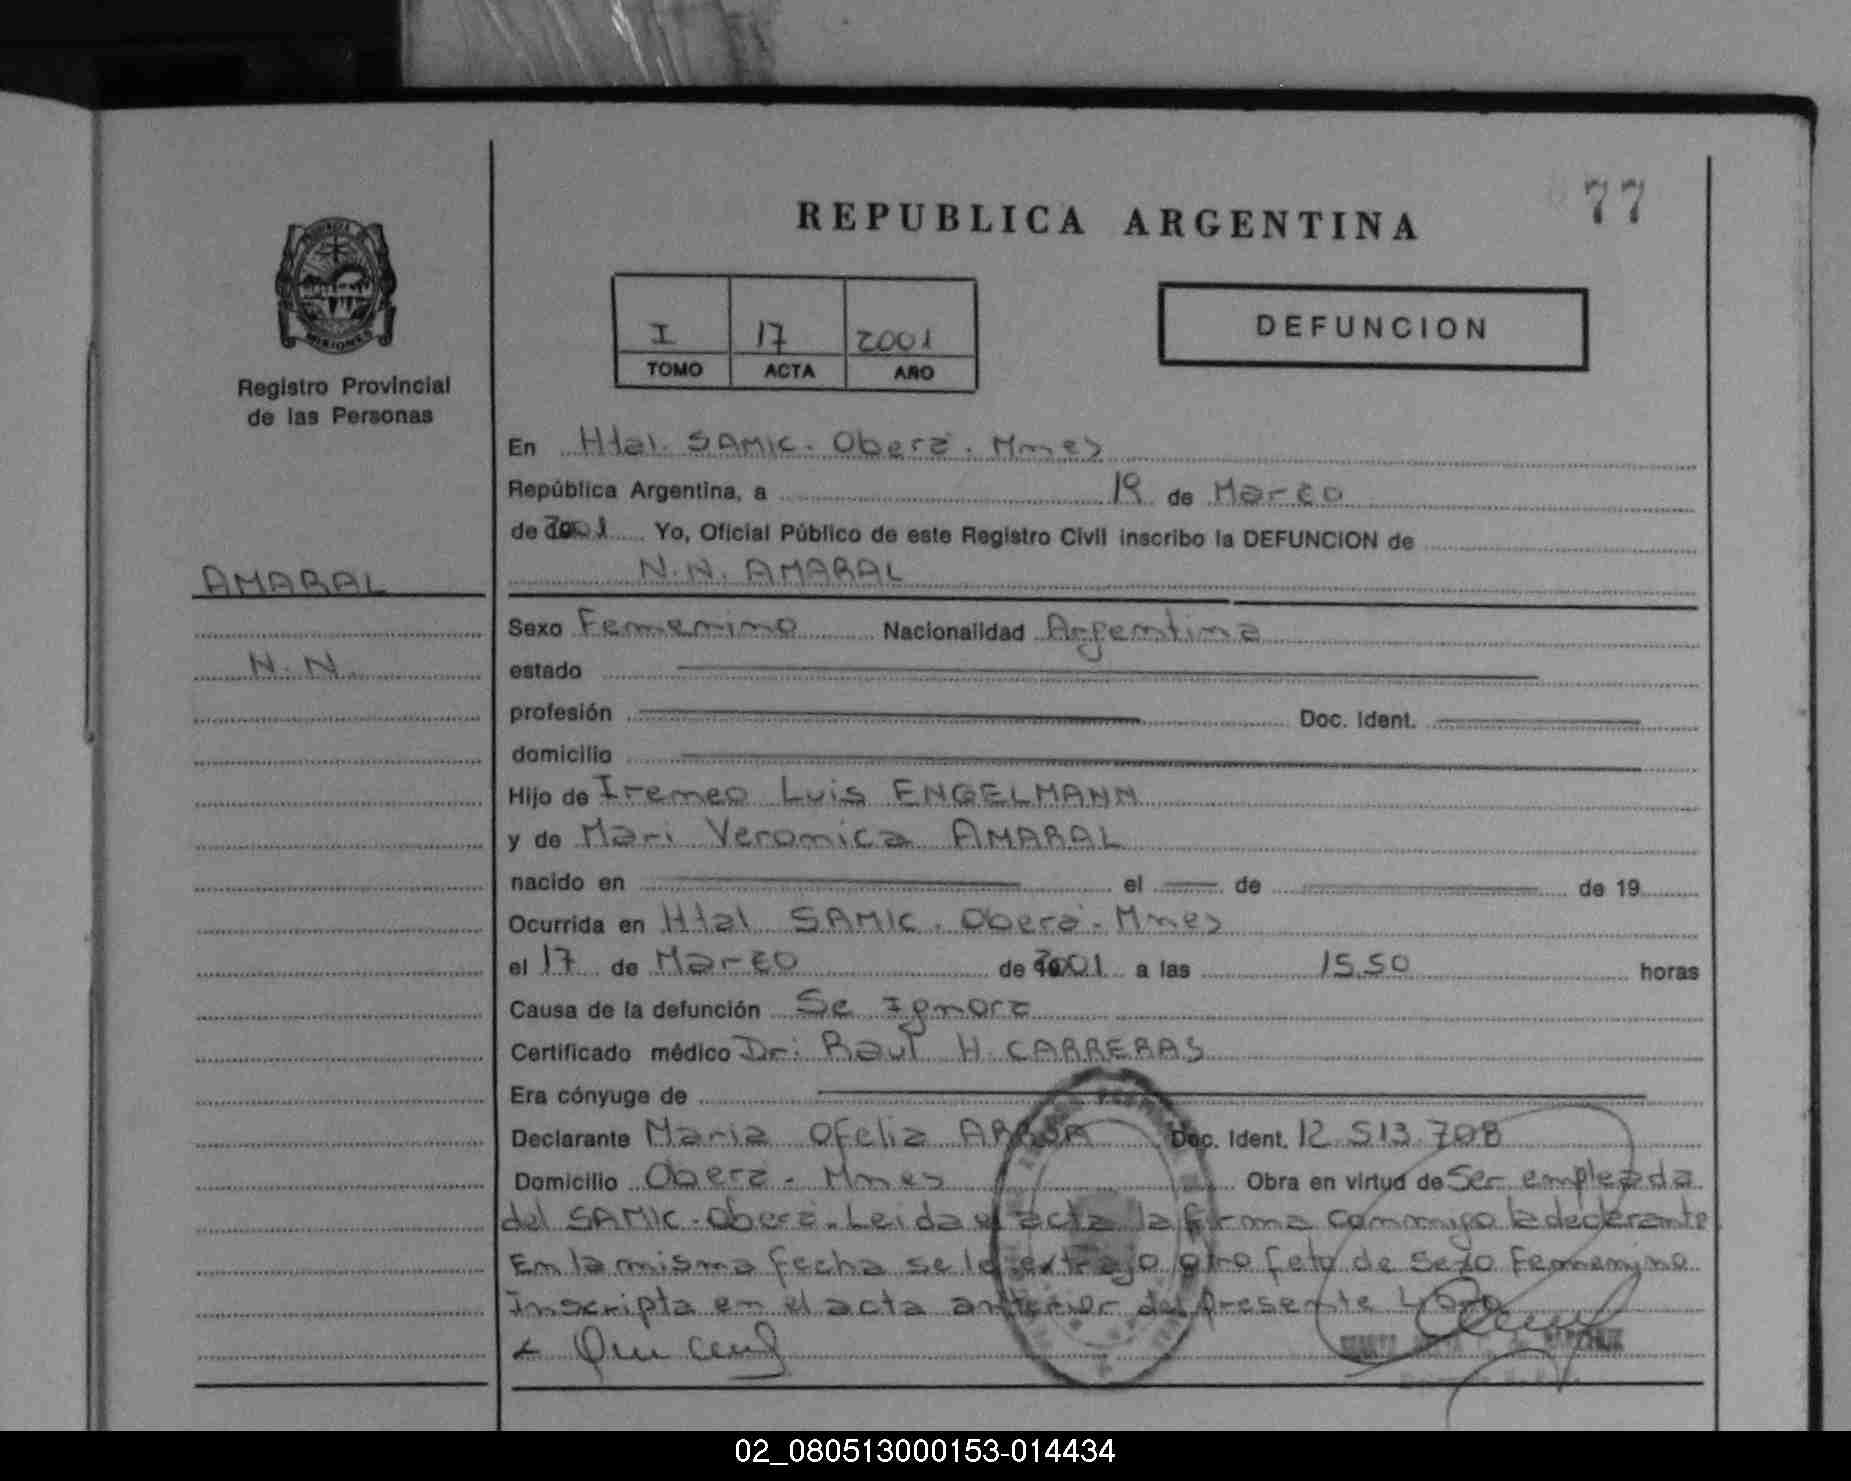 77
REPUBLICA ARGENTINA
PROVINCIA
MISIONES
Registro Provincial
de las Personas
I 17 2001
TOMO ACTA AÑO
DEFUNCION
En Htal. SAMIC. Oberá. Mnes
República Argentina, a 19 de Marzo
de 2001 Yo, Oficial Público de este Registro Civil inscribo la DEFUNCION de
AMARAL
N.N. AMARAL
Sexo Femenino Nacionalidad Argentina
N.N.
estado
profesión Doc. Ident.
domicilio
Hijo de Ireneo Luis ENGELMANN
y de Mari Veronica AMARAL
nacido en el de de 19
Ocurrida en Htal SAMIC. Oberá. Mnes
el 17 de Marzo de 2001 a las 15.50 horas
Causa de la defunción Se Ignora
Certificado médico Dr. Raul H. CARRERAS
Era cónyuge de
Declarante Maria Ofelia Doc. Ident. 12.513.708
Domicilio Oberá. Mnes Obra en virtud de Ser empleada
del SAMIC. Oberá. Leida el acta la firma conmigo la declarante
En la misma fecha se le extrajo otro feto de sexo Femenino
Inscripta en el acta anterior del presente
02_080513000153-014434